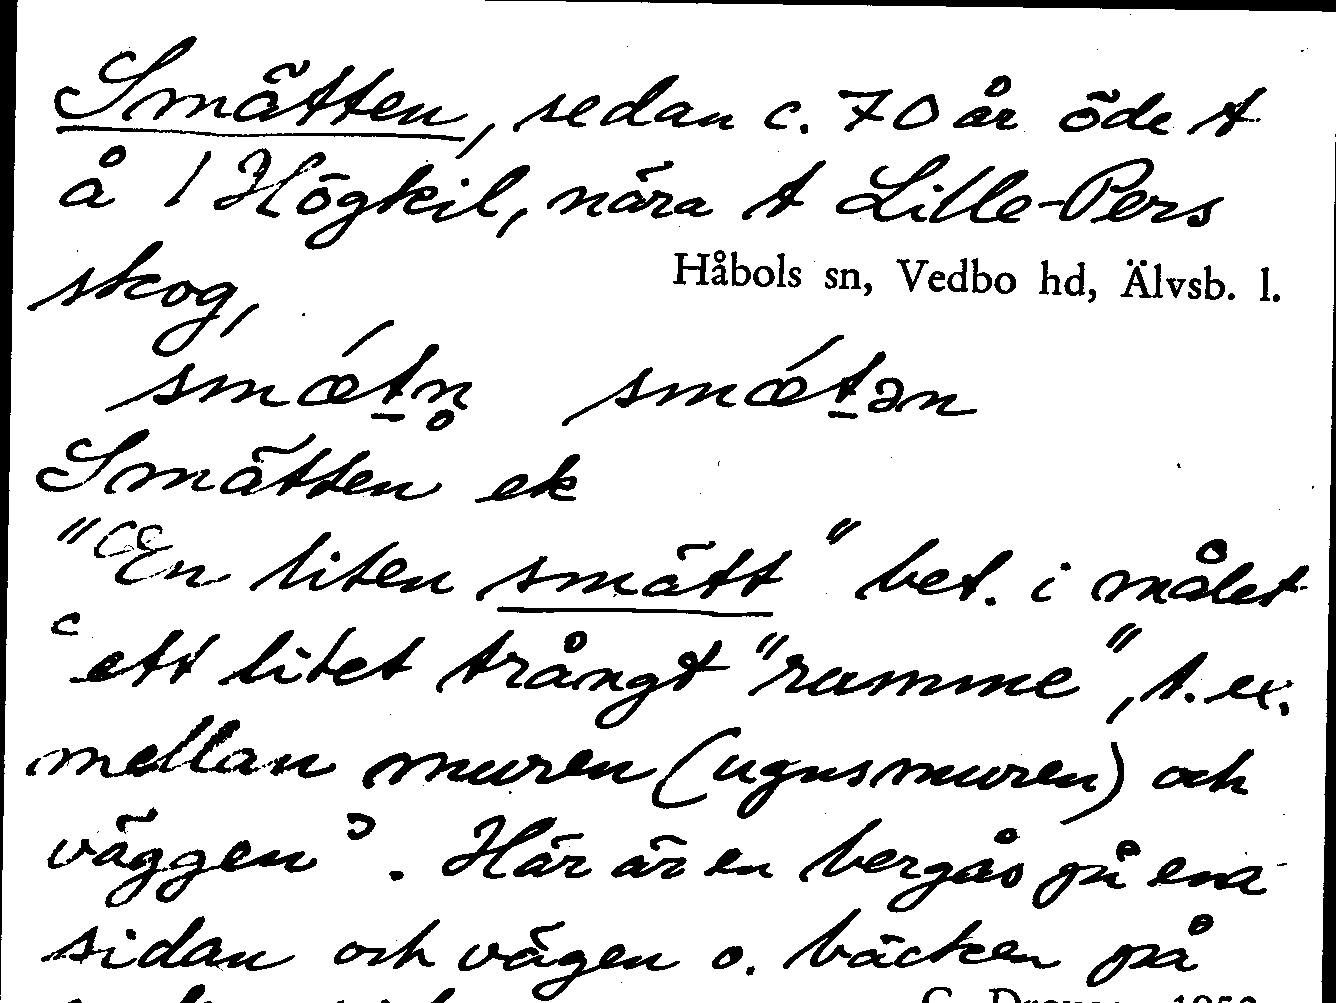 Smätten, sedan c. 70 år öde t
å 1 Högkil, nära t Lille-Pers
skog,
Håbols sn, Vedbo hd, Älvsb. l.
smǽt̠n̥ smǽt̠ən
Smätten ek
"En liten smätt" bet. i målet
"ett litet trångt "ramme", t. ex.
mellan muren (ugnsmuren) och
väggen". Här är en bergås på ena
sidan och vägen o. bäcken på